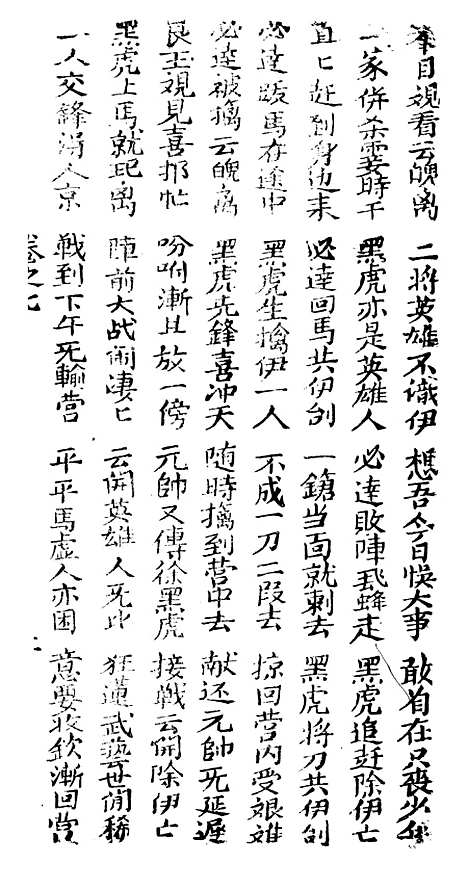 举目覌看云魄离 二将英雄不識伊 想吾今日悞大事 敢自在只喪少年
一家併杀霎時千 黑虎亦是英雄人 必達敗陣飛蜂走 黑虎追赶除伊亡
直匕赶到身边来 必達回馬共伊刣 一鎗当面就刺去 黑虎将刀共伊刣
必達跋馬在途中 黑虎生擒伊一人 不成一刀二段去 掠回营内受艰难
必達被擒云魄离 黑虎先鋒喜冲天 随時擒到营中去 献还元帥死延遲
良王覌見喜 忙 吩咐漸且放一傍 元帥又傳徐黑虎 接戰云開除伊亡
黑虎上馬就 离 陣前大战闹凄匕 云開英雄人死比 狂蓮武藝世间稀
一人交鋒 人京 戰到下午死輸营 平平馬虚人亦困 意要收欽漸回营
卷之七